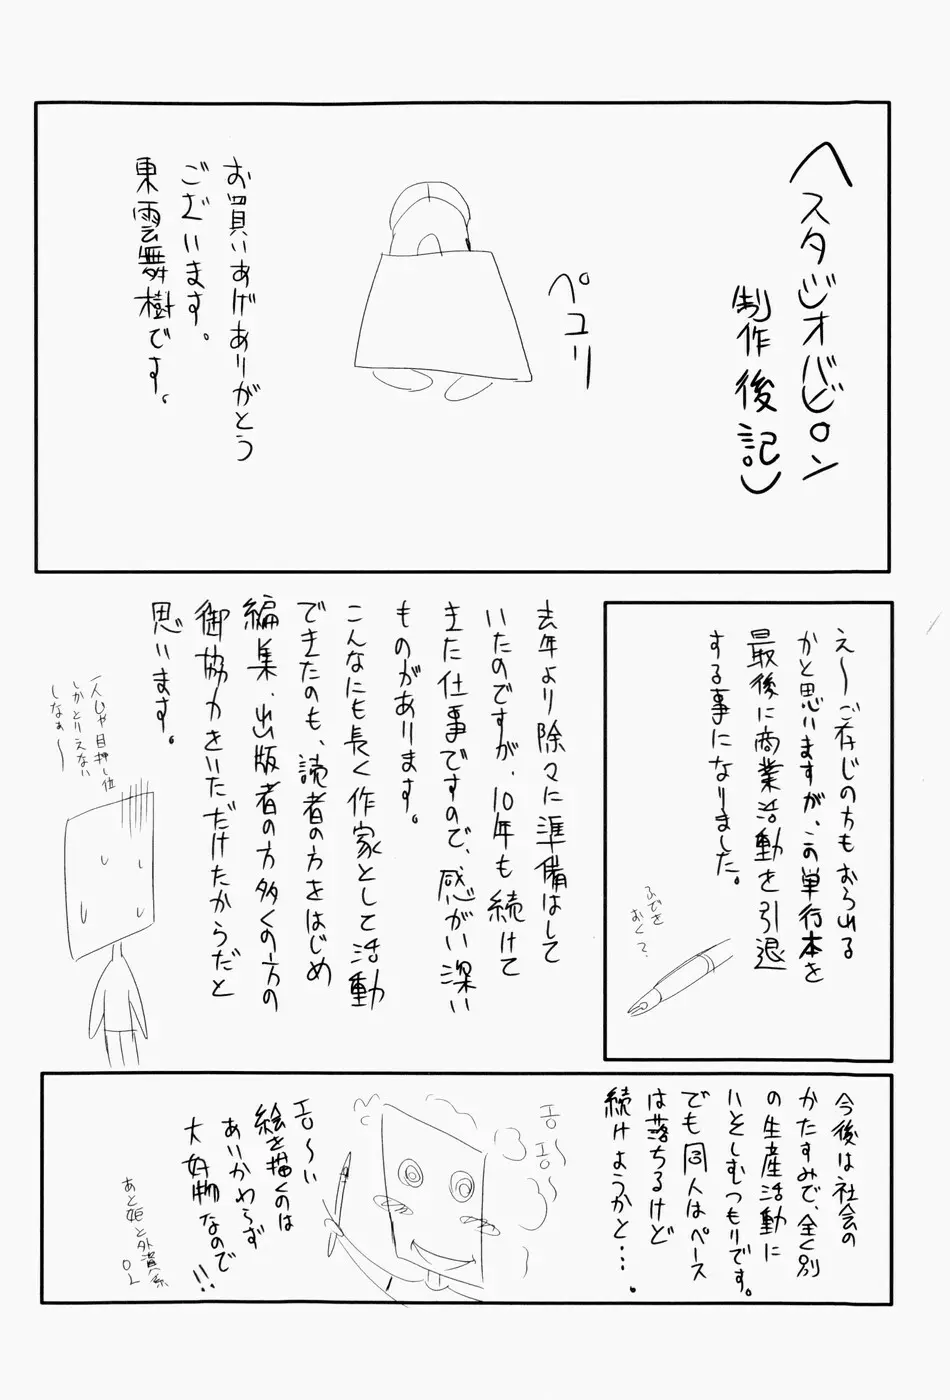 スタジオバビロン
制作後記
ペコリ
お買いあげありがとう
ございます。
東雲舞樹です。
え〜ご存じの方もおられる
かと思いますが、この単行本を
最後に商業活動を引退
する事になりました。
ふでを
おく？
去年より除々に準備はして
いたのですが、10年も続けて
きた仕事ですので、感がい深い
ものがあります。
こんなにも長く作家として活動
できたのも、読者の方をはじめ
編集、出版者の方多くの方の
御協力をいただけたからだと
思います。
一人じゃ目押し位
しかとりえない
しなぁ〜
今後は社会の
かたすみで、全く別
の生産活動に
いそしむつもりです。
でも同人はペース
は落ちるけど
続けようかと…。
エロ
エロ〜
エロ〜い
絵を描くのは
あいかわらず
大好物なので
!!
あと姫と外資系
OL